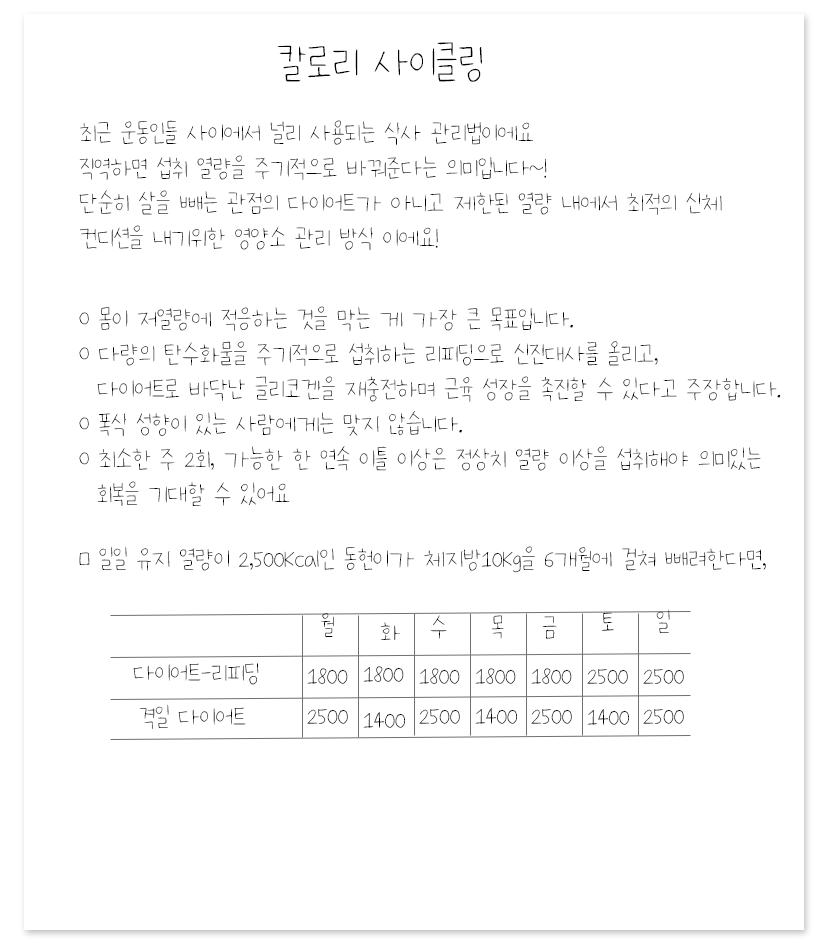 칼로리 사이클링
최근 운동인들 사이에서 널리 사용되는 식사 관리법이에요
직역하면 섭취 열량을 주기적으로 바꿔준다는 의미입니다~!
단순히 살을 빼는 관점의 다이어트가 아니고 제한된 열량 내에서 최적의 신체
컨디션을 내기위한 영양소 관리 방식 이에요!
○ 몸이 저열량에 적응하는 것을 막는 게 가장 큰 목표입니다.
○ 다량의 탄수화물을 주기적으로 섭취하는 리피딩으로 신진대사를 올리고,
다이어트로 바닥난 글리코겐을 재충전하며 근육 성장을 촉진할 수 있다고 주장합니다.
○ 폭식 성향이 있는 사람에게는 맞지 않습니다.
○ 최소한 주 2회, 가능한 한 연속 이틀 이상은 정상치 열량 이상을 섭취해야 의미있는
회복을 기대할 수 있어요
□ 일일 유지 열량이 2,500Kcal인 동현이가 체지방10Kg을 6개월에 걸쳐 빼려한다면,
월 화 수 목 금 토 일
다이어트-리피딩 1800 1800 1800 1800 1800 2500 2500
격일 다이어트 2500 1400 2500 1400 2500 1400 2500